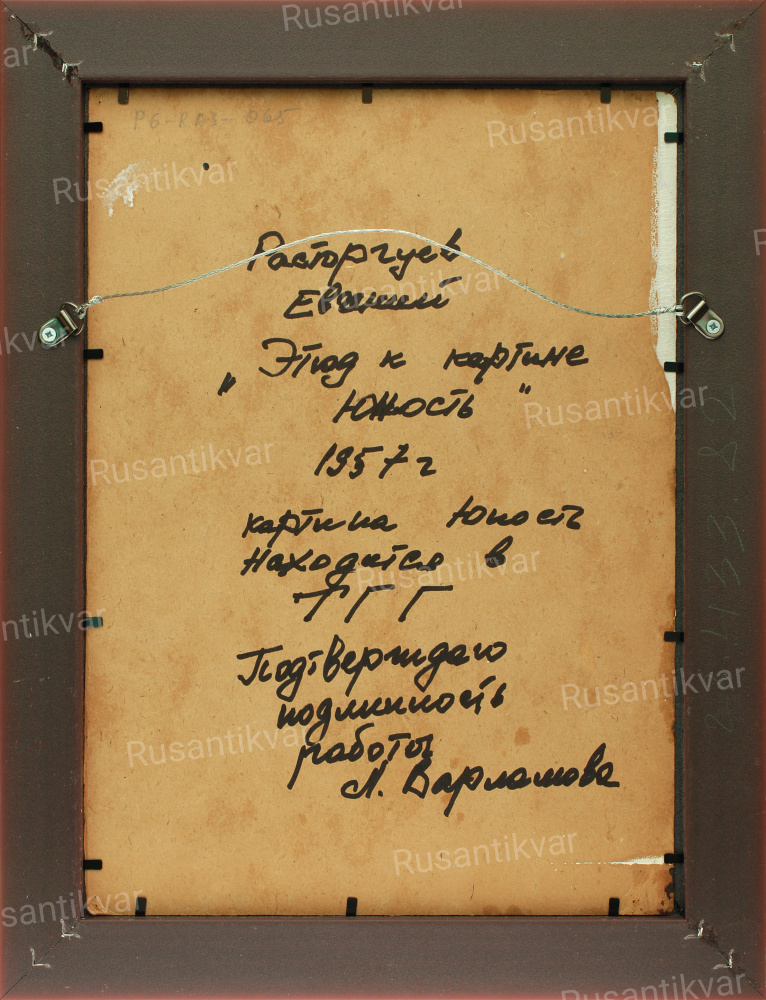 PG-RA3-065
Расторгуев
Евгений
„Этюд к картине
Юность"
1957 г
картина Юность
находится в
ТГГ
Подтверждаю
подлинность
работы
Л. Варламова
Rusantikvar